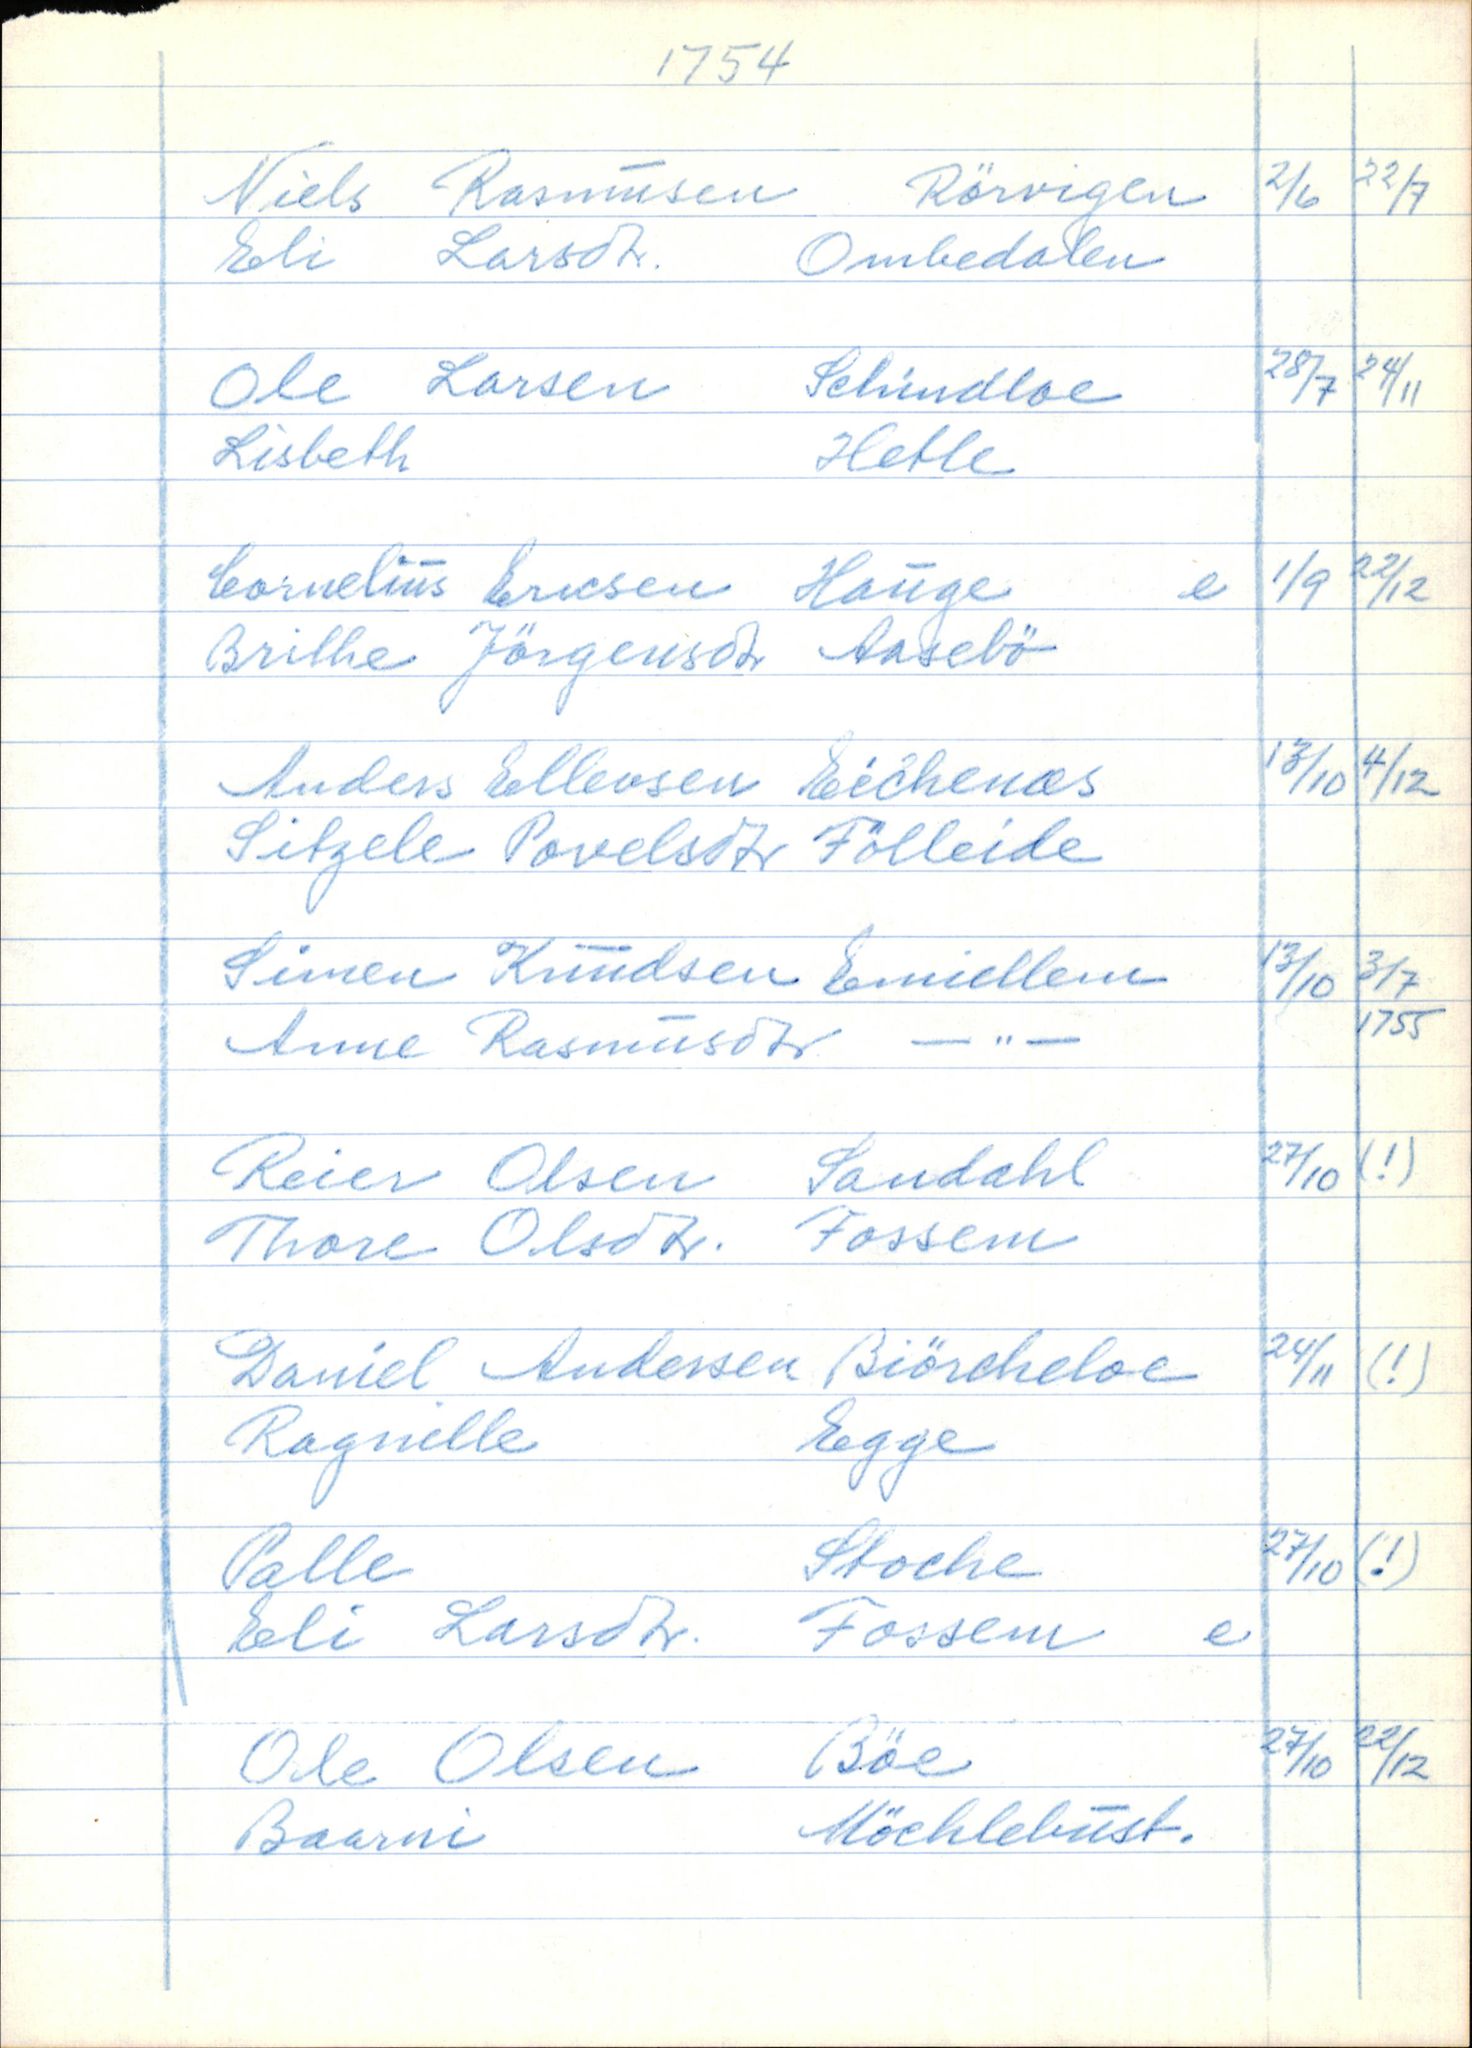 1754
Niels Rasmusen Rörvigen 2/6 22/7
Eli Larsdtr. Ombedalen
Ole Larsen Schindloe 28/7 24/11
Lisbeth Hetle
Cornelius Ericsen Hauge e 1/9 22/12
Brithe Jörgensdtr Aasebö
Anders Ellevsen Eichenæs 13/10 4/12
Sitzele Povelsdtr Fölleide
Simen Knudsen Emiellem 13/10 3/7
Anne Rasmusdtr — " — 1755
Reier Olsen Sandahl 27/10 (!)
Thore Olsdtr. Fossem
Daniel Andersen Biörcheloe 24/11 (!)
Ragnille Egge
Palle Stoche 27/10 (!)
Eli Larsdtr. Fossem e
Ole Olsen Böe 27/10 22/12
Baarni Möchlebust.